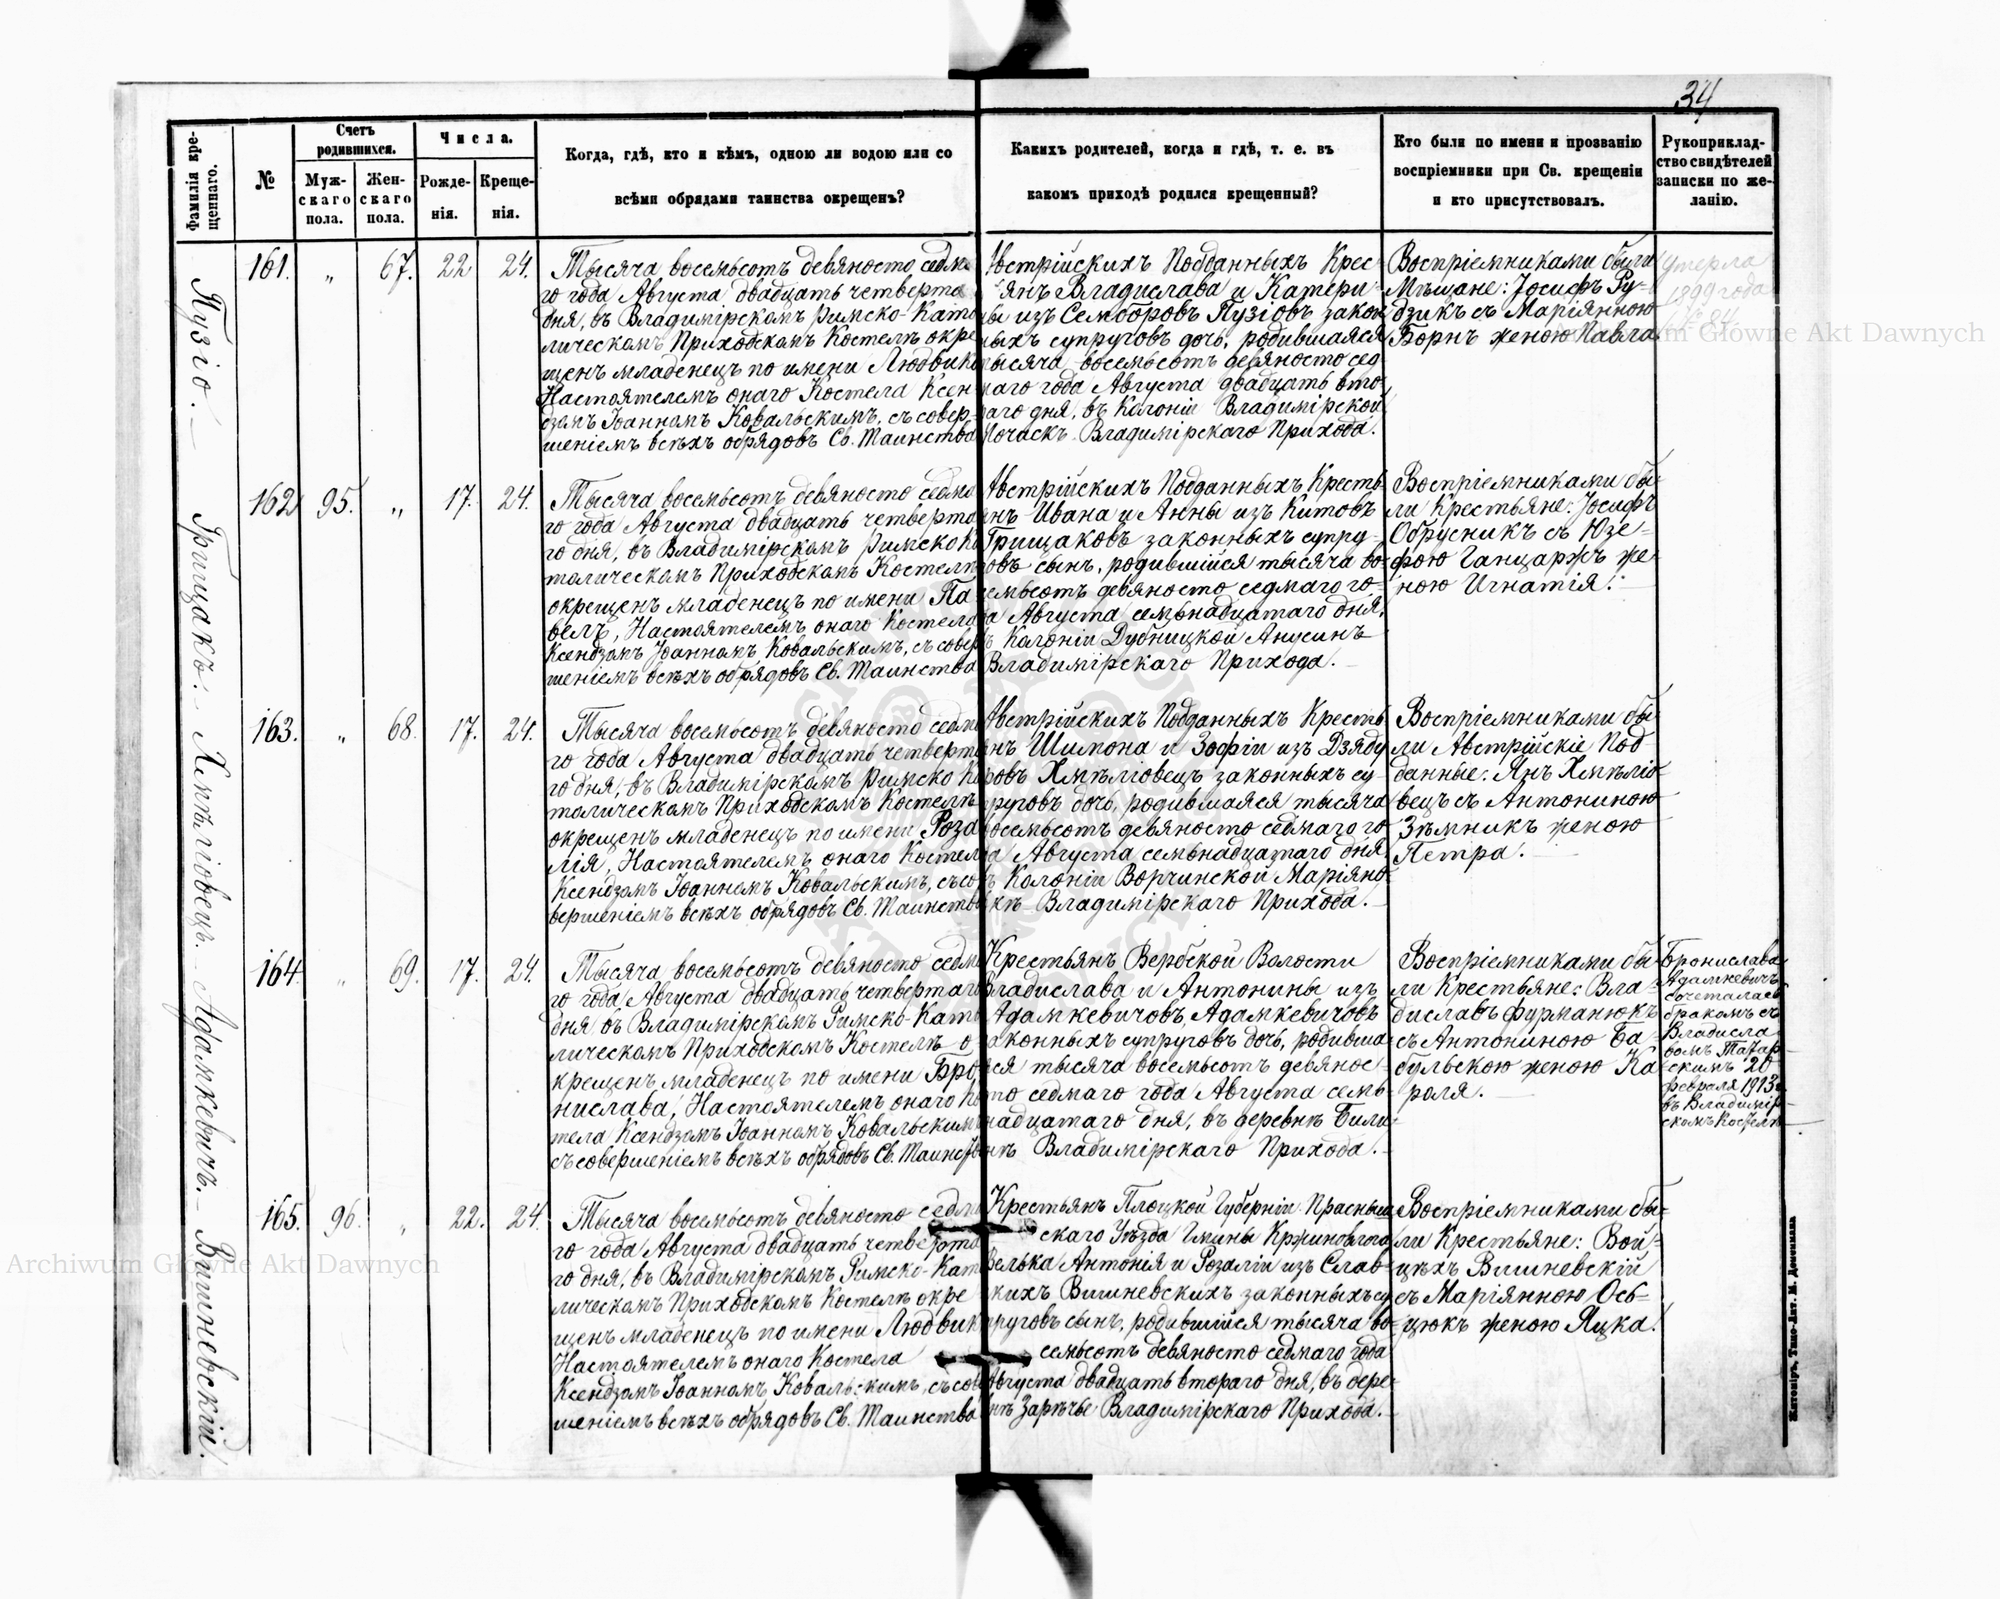 34
Фамилія кре-
щеннаго.
№
Счетъ
родившихся.
Муж-
скаго
пола.
Жен-
скаго
пола.
Числа.
Рожде-
нія.
Креще-
нія.
Когда, гдѣ, кто и кѣмъ, одною ли водою или со
всѣми обрядами таинства окрещенъ?
Какихъ родителей, когда и гдѣ, т. е. въ
какомъ приходѣ родился крещенный?
Кто были по имени и прозванію
воспріемники при Св. крещеніи
и кто присутствовалъ.
Рукоприклад-
ство свидѣтелей
записки по же-
ланію.
Пузіо.
161. „ 67. 22 24.
Тысяча восемьсотъ девяносто седма
го года Августа двадцать четверта
дня, въ Владимірскомъ Римско-Като
лическомъ Приходскомъ Костелѣ окре
щенъ младенецъ по имени Людвика
Настоятелемъ онаго Костела Ксен
дзомъ Іоанномъ Ковальскимъ, съ совер-
шеніемъ всѣхъ обрядовъ Св. Таинства
Австрійскихъ Подданныхъ Крес-
янъ Владислава и Катери-
ны изъ Семборовъ Пузіовъ закон
ныхъ супруговъ дочь, родившаяся
тысяча восемьсотъ девяносто сед
маго года Августа двадцать вто
раго дня, въ Колоніи Владимірской
Почаскъ Владимірскаго Прихода.
Воспріемниками были
Мѣщане: Іосифъ Ру-
дзикъ съ Маріянною
Борнъ женою Павла
умерла
1899 года
№ 84
Грищакъ.
162 95. „ 17. 24.
Тысяча восемьсотъ девяносто седма
го года Августа двадцать четверто
го дня, въ Владимірскомъ Римско Ка
толическомъ Приходскомъ Костелѣ
окрещенъ младенецъ по имени Па
велъ, Настоятелемъ онаго Костела
Ксендзомъ Іоанномъ Ковальскимъ, съ совер
шеніемъ всѣхъ обрядовъ Св. Таинства
Австрійскихъ Подданныхъ Кресть
янъ Ивана и Анны изъ Китовъ
Грищаковъ законныхъ супру-
говъ сынъ, родившійся тысяча во-
семьсотъ девяносто седмаго го-
да Августа семьнадцатаго дня,
въ Колоніи Дубницкой Анусинъ
Владимірскаго Прихода.
Воспріемниками бы-
ли Крестьяне: Іосифъ
Обрусникъ съ Юзе-
фою Ганцаржъ же-
ною Игнатія.
Хмѣліовецъ.
163. „ 68. 17. 24.
Тысяча восемьсотъ девяносто седма
го года Августа двадцать четверта
го дня, въ Владимірскомъ Римско Ка
толическомъ Приходскомъ Костелѣ
окрещенъ младенецъ по имени Роза
лія, Настоятелемъ онаго Костела
Ксендзомъ Іоанномъ Ковальскимъ, съ со
вершеніемъ всѣхъ обрядовъ Св. Таинства
Австрійскихъ Подданныхъ Кресть
янъ Шимона и Зофіи изъ Дзяду
ровъ Хмѣліовецъ законныхъ су-
пруговъ дочь, родившаяся тысяча
восемьсотъ девяносто седмаго го
да Августа семьнадцатаго дня
въ Колоніи Ворчинской Маріяно-
вкѣ Владимірскаго Прихода.
Воспріемниками бы-
ли Австрійскіе Под
данные: Янъ Хмѣліо-
вецъ съ Антониною
Зѣмникъ женою
Петра.
Адамкевичъ.
164. „ 69. 17. 24.
Тысяча восемьсотъ девяносто седма
го года Августа двадцать четвертаго
дня въ Владимірскомъ Римско-Като
лическомъ Приходскомъ Костелѣ о
крещенъ младенецъ по имени Бро
нислава, Настоятелемъ онаго Кос
тела Ксендзомъ Іоанномъ Ковальскимъ
съ совершеніемъ всѣхъ обрядовъ Св. Таинства
Крестьянъ Вербской Волости
Владислава и Антонины изъ
Адамкевичовъ Адамкевичовъ
законныхъ супруговъ дочь, родивша
яся тысяча восемьсотъ девянос-
то седмаго года Августа семь-
надцатаго дня, въ деревнѣ Били
нѣ Владимірскаго Прихода.
Воспріемниками бы-
ли Крестьяне: Вла-
диславъ Фурманюкъ
съ Антониною Ба-
бульскою женою Ка
роля.
Бронислава
Адамкевичъ
сочеталась
бракомъ съ
Владисла
вомъ Татар
скимъ 20
февраля 1913г
въ Владимір-
скомъ Костелѣ
Вишневскій.
165. 96. „ 22. 24.
Тысяча восемьсотъ девяносто седма
го года Августа двадцать четверта
го дня, въ Владимірскомъ Римско-Като
лическомъ Приходскомъ Костелѣ окре
щенъ младенецъ по имени Людвикъ
Настоятелемъ онаго Костела
Ксендзомъ Іоанномъ Ковальскимъ, съ сове
шеніемъ всѣхъ обрядовъ Св. Таинства
Крестьянъ Плоцкой Губерніи Прасныш
скаго Уѣзда Гмины Кржиновлога
Велька Антонія и Розаліи изъ Слав-
скихъ Вишневскихъ законныхъ су
пруговъ сынъ, родившійся тысяча во-
семьсотъ девяносто седмаго года
Августа двадцать втораго дня, въ дере-
внѣ Зарѣчье Владимірскаго Прихода.
Воспріемниками бы-
ли Крестьяне: Вой-
цѣхъ Вишневскій
съ Маріянною Ось-
цюкъ женою Яцка.
Житоміръ, Типо-Лит. М. Дененмана
Archiwum Główne Akt Dawnych
Archiwum Główne Akt Dawnych